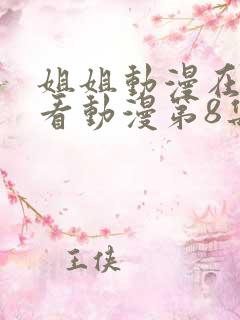 姐姐動漫在
看動漫第8集
王俠